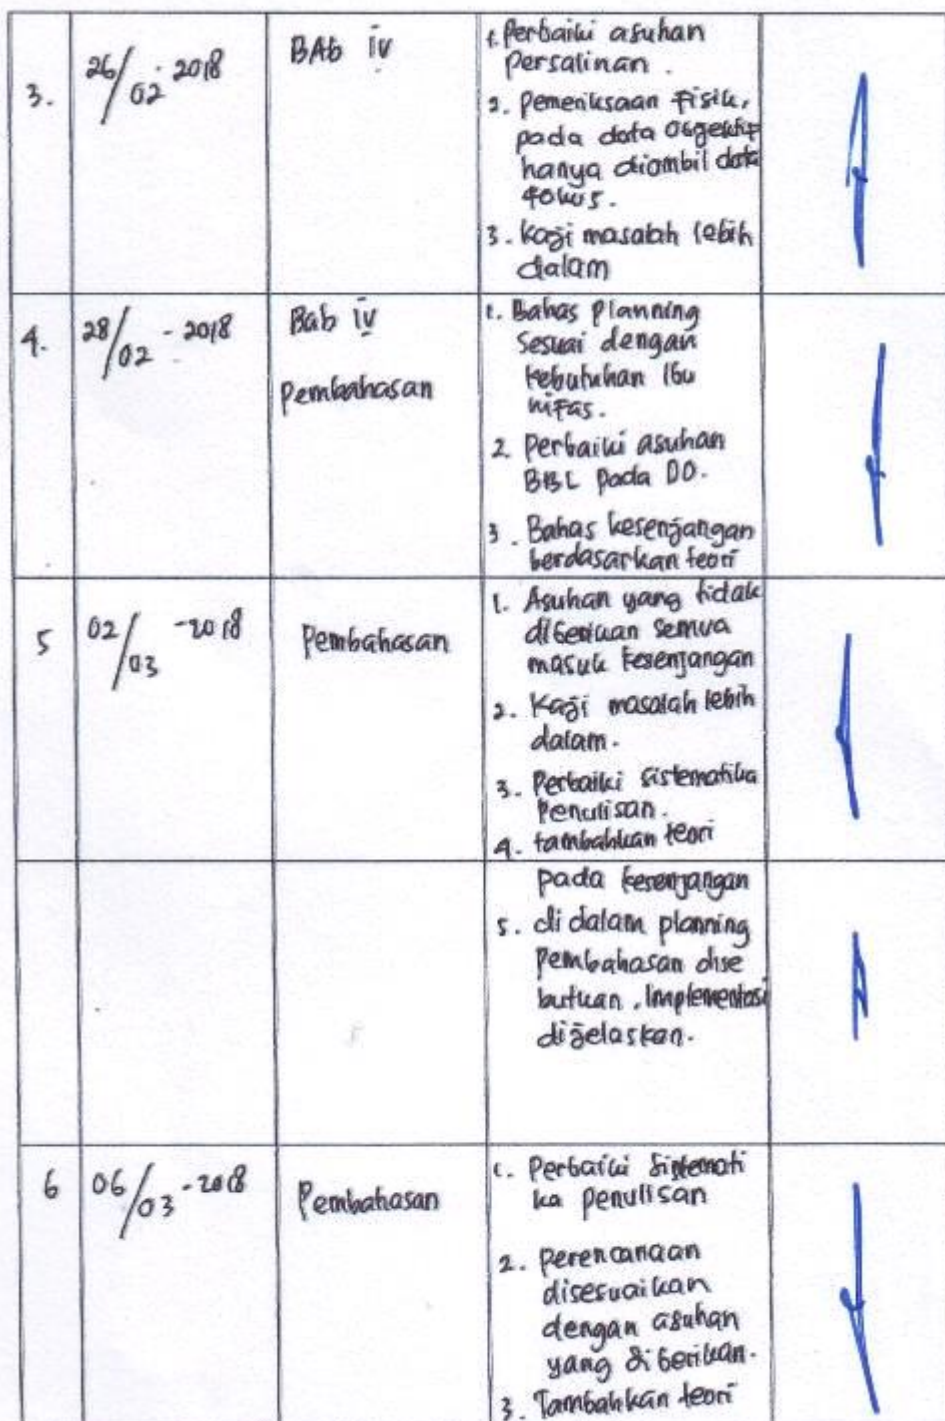 3.
26/02-2018
BAb iv
1. Perbaiki asuhan
Persalinan.
2. Pemeriksaan Fisik,
pada data Objektif
hanya diambil data
fokus.
3. Kaji masalah lebih
dalam
4.
28/02-2018
Bab iv
Pembahasan
1. Bahas Planning
Sesuai dengan
kebutuhan Ibu
nifas.
2. Perbaiki asuhan
BBL pada DO.
3. Bahas kesenjangan
berdasarkan teori
5
02/03-2018
Pembahasan
1. Asuhan yang tidak
diberikan semua
masuk kesenjangan
2. Kaji masalah lebih
dalam.
3. Perbaiki sistematika
Penulisan.
4. tambahkan teori
pada kesenjangan
5. di dalam planning
Pembahasan dise
butkan, Implementasi
dijelaskan.
6
06/03-2018
Pembahasan
1. Perbaiki Sistemati
ka penulisan
2. perencanaan
disesuaikan
dengan asuhan
yang diberikan.
3. Tambahkan teori